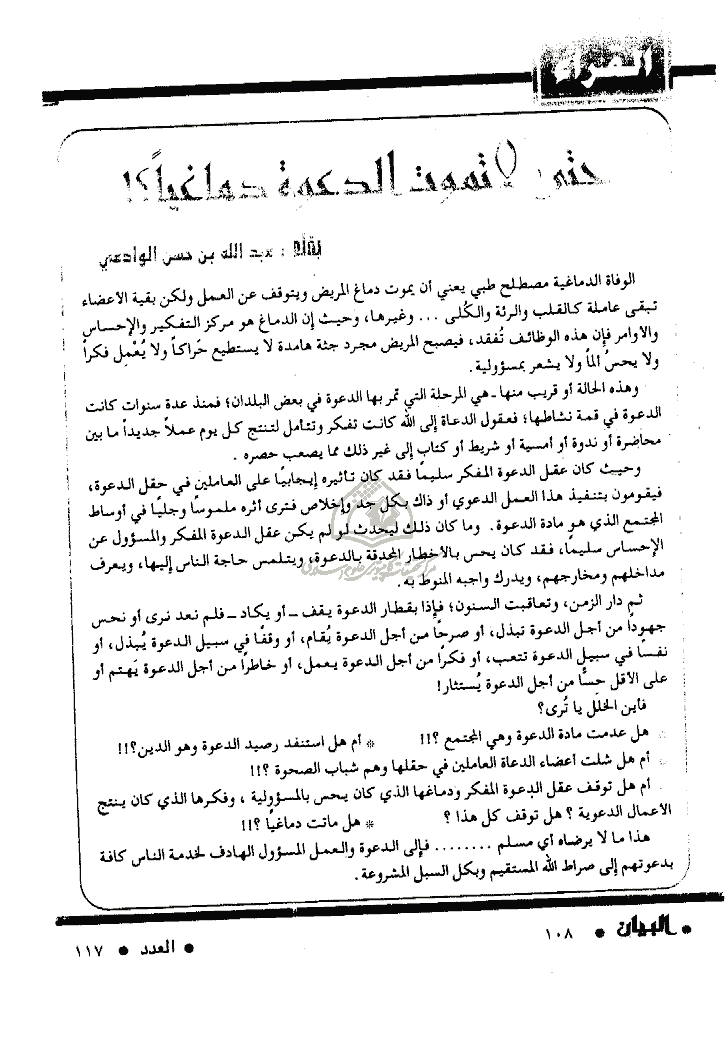 حتى لا تموت الدعوة دماغياً؟!
بقلم : عبد الله بن حسن الوادعي
الوفاة الدماغية مصطلح طبي يعني أن يموت دماغ المريض ويتوقف عن العمل ولكن بقية الأعضاء
تبقى عاملة كالقلب والرئة والكُلى ... وغيرها، وحيث إن الدماغ هو مركز التفكير والإحساس
والأوامر فإن هذه الوظائف تُفقد، فيصبح المريض مجرد جثة هامدة لا يستطيع حَراكاً ولا يُعْمِل فكراً
ولا يحسُ ألماً ولا يشعر بمسؤولية.
وهذه الحالة أو قريب منها ـ هي المرحلة التي تمر بها الدعوة في بعض البلدان؛ فمنذ عدة سنوات كانت
الدعوة في قمة نشاطها؛ فعقول الدعاة إلى الله كانت تفكر وتتأمل لتنتج كل يوم عملاً جديداً ما بين
محاضرة أو ندوة أو أمسية أو شريط أو كتاب إلى غير ذلك مما يصعب حصره .
وحيث كان عقل الدعوة المفكر سليماً فقد كان تأثيره إيجابياً على العاملين في حقل الدعوة،
فيقومون بتنفيذ هذا العمل الدعوي أو ذاك بكل جد وإخلاص فترى أثره ملموساً وجليّاً في أوساط
المجتمع الذي هو مادة الدعوة. وما كان ذلك ليحدث لو لم يكن عقل الدعوة المفكر والمسؤول عن
الإحساس سليماً، فقد كان يحس بالأخطار المحدقة بالدعوة، ويتلمس حاجة الناس إليها، ويعرف
مداخلهم ومخارجهم، ويدرك واجبه المنوط به.
ثم دار الزمن، وتعاقبت السنون؛ فإذا بقطار الدعوة يقف ـ أو يكاد ـ فلم نعد نرى أو نحس
جهوداً من أجل الدعوة تبذل، أو صرحاً من أجل الدعوة يُقام، أو وقفاً في سبيل الدعوة يُبذل، أو
نفساً في سبيل الدعوة تتعب، أو فكراً من أجل الدعوة يعمل، أو خاطراً من أجل الدعوة يَهتم أو
على الأقل حِسّاً من أجل الدعوة يُستثار!
فأين الخلل يا تُرى؟
* هل عدمت مادة الدعوة وهي المجتمع ؟!! * أم هل استنفد رصيد الدعوة وهو الدين؟!!
* أم هل شلت أعضاء الدعاة العاملين في حقلها وهم شباب الصحوة ؟!!
* أم هل توقف عقل الدعوة المفكر ودماغها الذي كان يحس بالمسؤولية ، وفكرها الذي كان ينتج
الأعمال الدعوية ؟ هل توقف كل هذا ؟ * هل ماتت دماغياً ؟!!
هذا ما لا يرضاه أي مسلم ........ فإلى الدعوة والعمل المسؤول الهادف لخدمة الناس كافة
بدعوتهم إلى صراط الله المستقيم وبكل السبل المشروعة.
• البيان • ١٠٨
• العدد • ١١٧